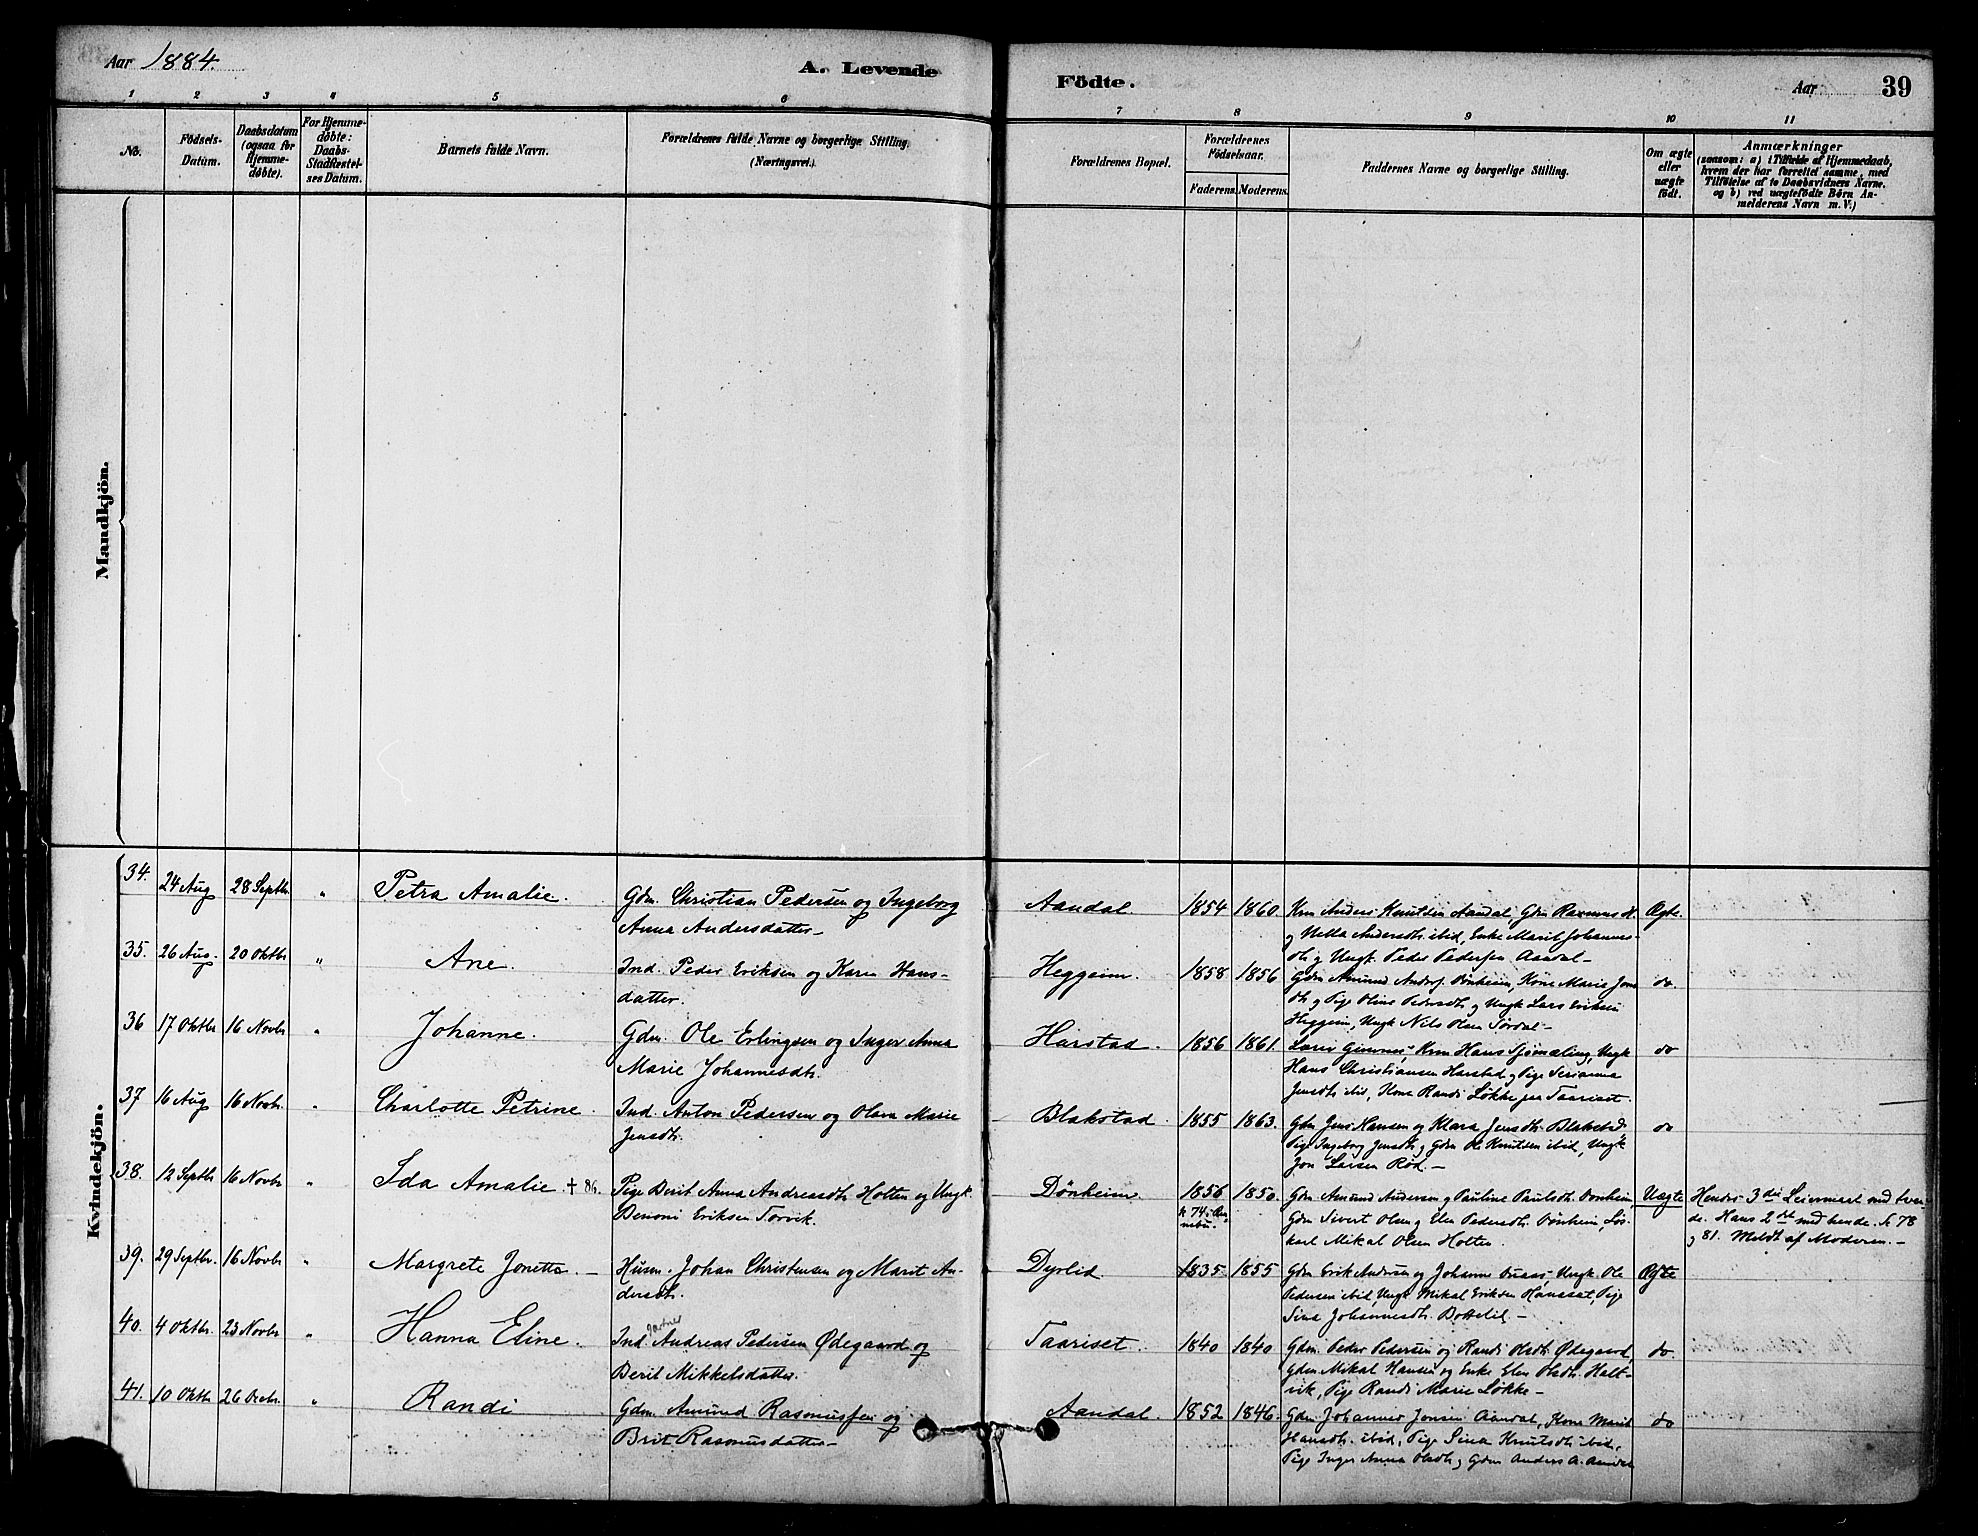 Aar 1884. A. Levende Födte. Aar 39
1 2 3 4 5 6 7 8 9 10 11
No. Födsels-Datum. Daabsdatum (ogsaa for Hjemmedøbte). For Hjemmedøbte: Daabs-Stadfæstelses Datum. Barnets fulde Navn. Forældrenes fulde Navne og borgerlige Stilling. (Næringsvei.) Forældrenes Bopæl. Forældrenes Födselsaar. Faderens. Moderens. Faddernes Navne og borgerlige Stilling. Om ægte eller uægte født. Anmærkninger (saasom: a) i Tilfælde af Hjemmedaab, hvem der har forrettet samme, med Tilføielse af to Daabsvidners Navne, og b) ved uægtefødte Børn Anmelderens Navn m. V.)
Mandkjön.
Kvindekjön.
34. 24 Aug 28 Septbr " Petra Amalie. Gdm. Christian Pedersen og Ingeborg Aandal. 1854 1860. Krm Anders Knutsen Aandal, Gdm Rasmus H. Ægte.
Anna Andersdatter- g Nella Andersdtr ibid, Enke Marit Johannes-
dtr g Ungk. Peder Pedersen Aandal-
35. 26 Aug. 20 Oktbr " Ane. Ind. Peder Eriksen og Karen Hans- Heggeim. 1858. 1856 Gdm Amund Anders. Dønheim, Kone Marie Jons do.
datter. dtr g Pige Oline Pedersdtr g Ungk Lars Eriksen
Heggeim, Ungk Nils Olsen Sørdal-
36 17 Oktbr 16 Novbr " Johanne. Gdm. Ole Erlingsen og Inger Anna Harstad. 1856 1861. Lærer Gimnes, Krm Hans Sjømæling, Ungk do
Marie Johannesdtr. Hans Christiansen Harstad g Pige Serianna
Jensdtr ibid, Kone Randi Løkke Taariset.
37 16 Aug 16 Novbr. " Charlotte Petrine. Ind. Anton Pedersen og Olava Marie Blakstad 1855 1863. Gdm Jens Hansen og Klara Jensdtr. Blakstad do
Jensdtr. Pige Ingeborg Jensdtr g Gdm Ole Knutsen ibid, Ungk
Jon Larsen Rød.-
38. 12 Septbr 16 Novbr " Ida Amalie. + 86. Pige Berit Anna Andreasdtr Holten og Ungk. Dønheim 1856 1850. Gdm Amund Andersen g Pauline Paulsdtr. Dønheim, Uægte Hendes 3die Leiermaal med
Benoni Eriksen Torvik. Gdm Sivert Olsen g Elen Pedersdtr Dønheim, de. Hans 2det med hende. 78
karl Mikal Olsen Holten. g 81. Meldt af Moderen.-
39. 29 Septbr. 16 Novbr " Margrete Jonetta.- Husm. Johan Christensen og Marit An- Dyrlid 1835. 1855 Gdm Erik Andersen g Johanne Ungk. Ole Ægte
dersdtr. Pedersen ibid, Ungk Mikal Eriksen Hanssæt, Pige
Sina Johannesdtr. Bottelid-
40. 4 Oktbr. 23 Novbr " Hanna Eline. Ind. Andreas Pedersen Ødegaard og Taariset. 1840 1840 Gdm. Peder Pedersen og Randi Olsdtr. Ødegaard, do.
Berit Mikkelsdatter. Gdm. Mikal Hansen og Enke Elen Olsdtr. Halt-
vik, Pige Randi Marie Løkke-
41. 10 Oktbr 26 Decbr. " Randi Gdm. Amund Rasmussen og Aandal. 1852 1846. Gdm. Johannes Jonsen Aandal, Kone Marit do
Brit Rasmusdatter- Hansdtr. ibid, Pige Sina Knutsdtr ibid,
Pige Inger Anna Olsdtr g Gdm Anders A. Aandal